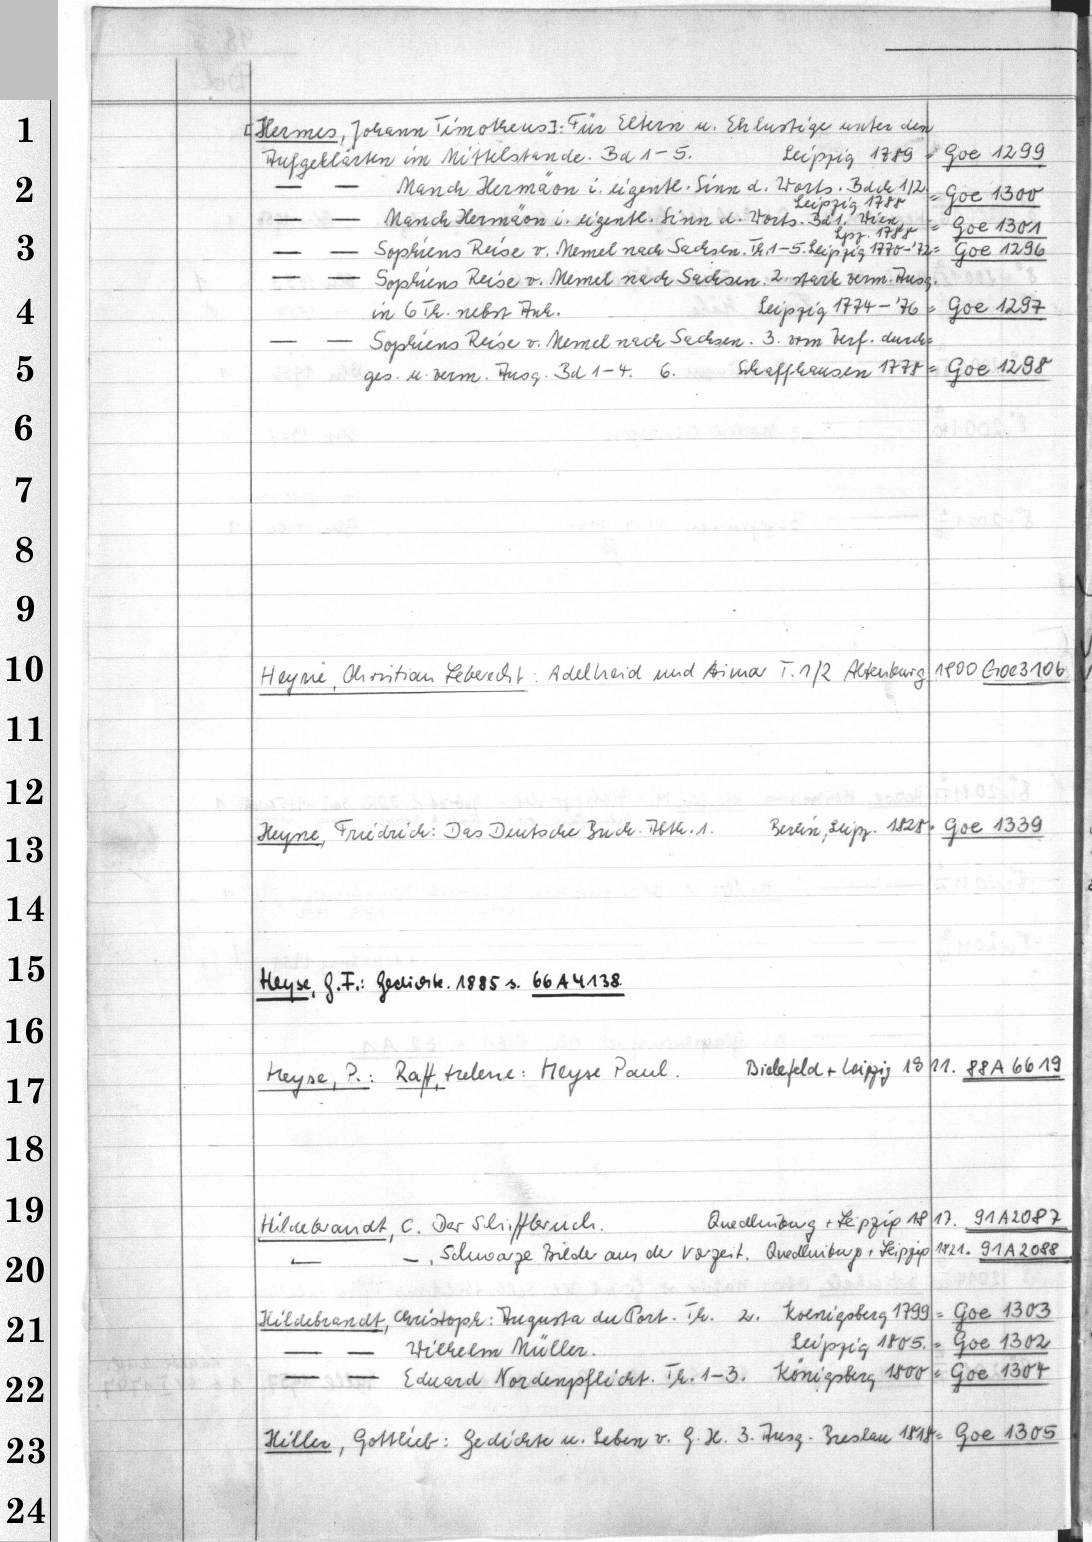 1
[Hermes, Johann Timotheus]: Für Eltern u. Ehlustige unter den
Aufgeklärten im Mittelstande. Bd 1-5. Leipzig 1789 = Goe 1299
2
— — Manch Hermäon i. eigentl. Sinn d. Worts. Bdch 1/2.
Leipzig 1788 = Goe 1300
— — Manch Hermäon i. eigentl. Sinn d. Worts. Bd 1. Wien,
Lpz. 1788 = Goe 1301
3
— — Sophiens Reise v. Memel nach Sachsen. Th. 1-5. Leipzig 1770-'72 = Goe 1296
— — Sophiens Reise v. Memel nach Sachsen. 2. stark verm. Ausg.
4
in 6 Th. nebst Anh. Leipzig 1774-'76 = Goe 1297
— — Sophiens Reise v. Memel nach Sachsen. 3. vom Verf. durch=
5
ges. u. verm. Ausg. Bd 1-4. 6. Schaffhausen 1778 = Goe 1298
6
7
8
9
10
Heyne, Christian Leberecht: Adelheid und Aimar T. 1/2 Altenburg 1800 Goe 3106
11
12
13
Heyne, Friedrich: Das Deutsche Buch. Abth. 1. Berlin, Leipz. 1828 = Goe 1339
14
15
Heyse, G. F.: Gedichte. 1885 s. 66 A 4138
16
17
Heyse, P.: Raff, Helene: Heyse Paul. Bielefeld + Leipzig 1911. 88 A 6619
18
19
Hildebrandt, C. Der Schiffbruch. Quedlinburg + Leipzig 1817. 91 A 2087
20
— —, Schwarze Bilder aus der Vorzeit. Quedlinburg + Leipzig 1821. 91 A 2088
21
Hildebrandt, Christoph: Augusta du Port. Th. 2. Koenigsberg 1799 = Goe 1303
— — Wilhelm Müller. Leipzig 1805. = Goe 1302
22
— — Eduard Nordenpflicht. Th. 1-3. Königsberg 1800 = Goe 1304
23
Hiller, Gottlieb: Gedichte u. Leben v. G. H. 3. Ausg. Breslau 1818 = Goe 1305
24